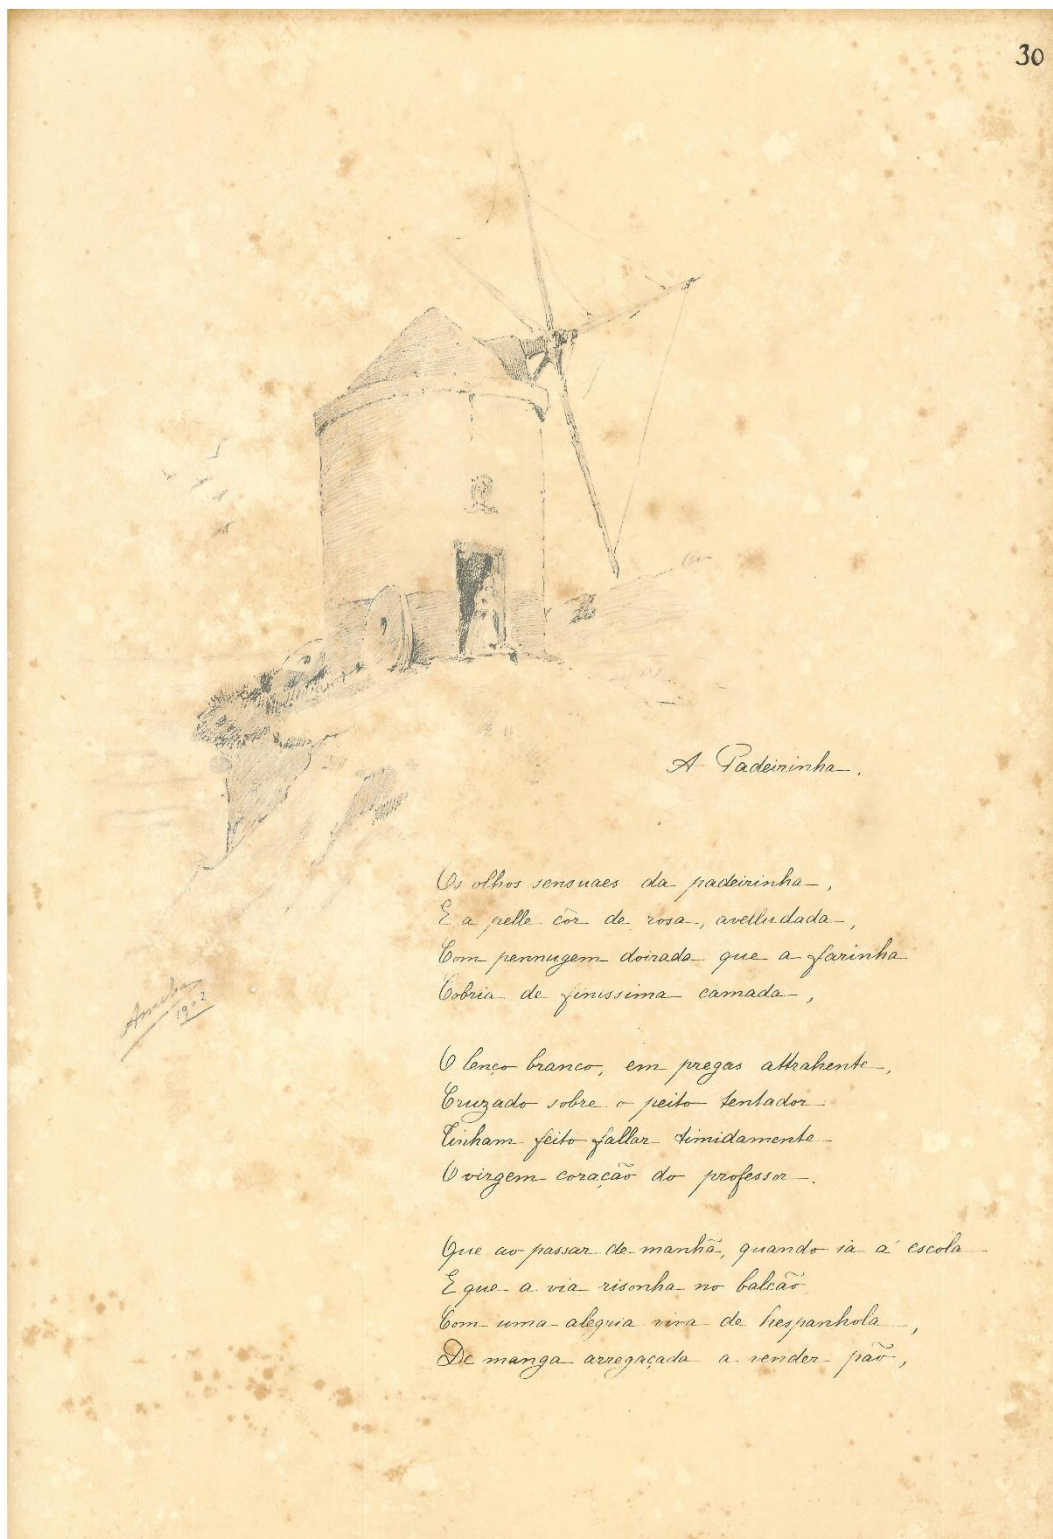 30
A Padeirinha.
Os olhos sensuaes da padeirinha,
E a pelle côr de rosa, avelludada,
Com pennugem doirada que a farinha
Cobria de finissima camada,
O lenço branco, em pregas attrahente,
Cruzado sobre o peito tentador
Tinham feito fallar timidamente
O virgem coração do professor.
Que ao passar de manhã, quando ia á escola
E que a via risonha no balcão
Com uma alegria viva de hespanhola,
De manga arregaçada a vender pão,
1902